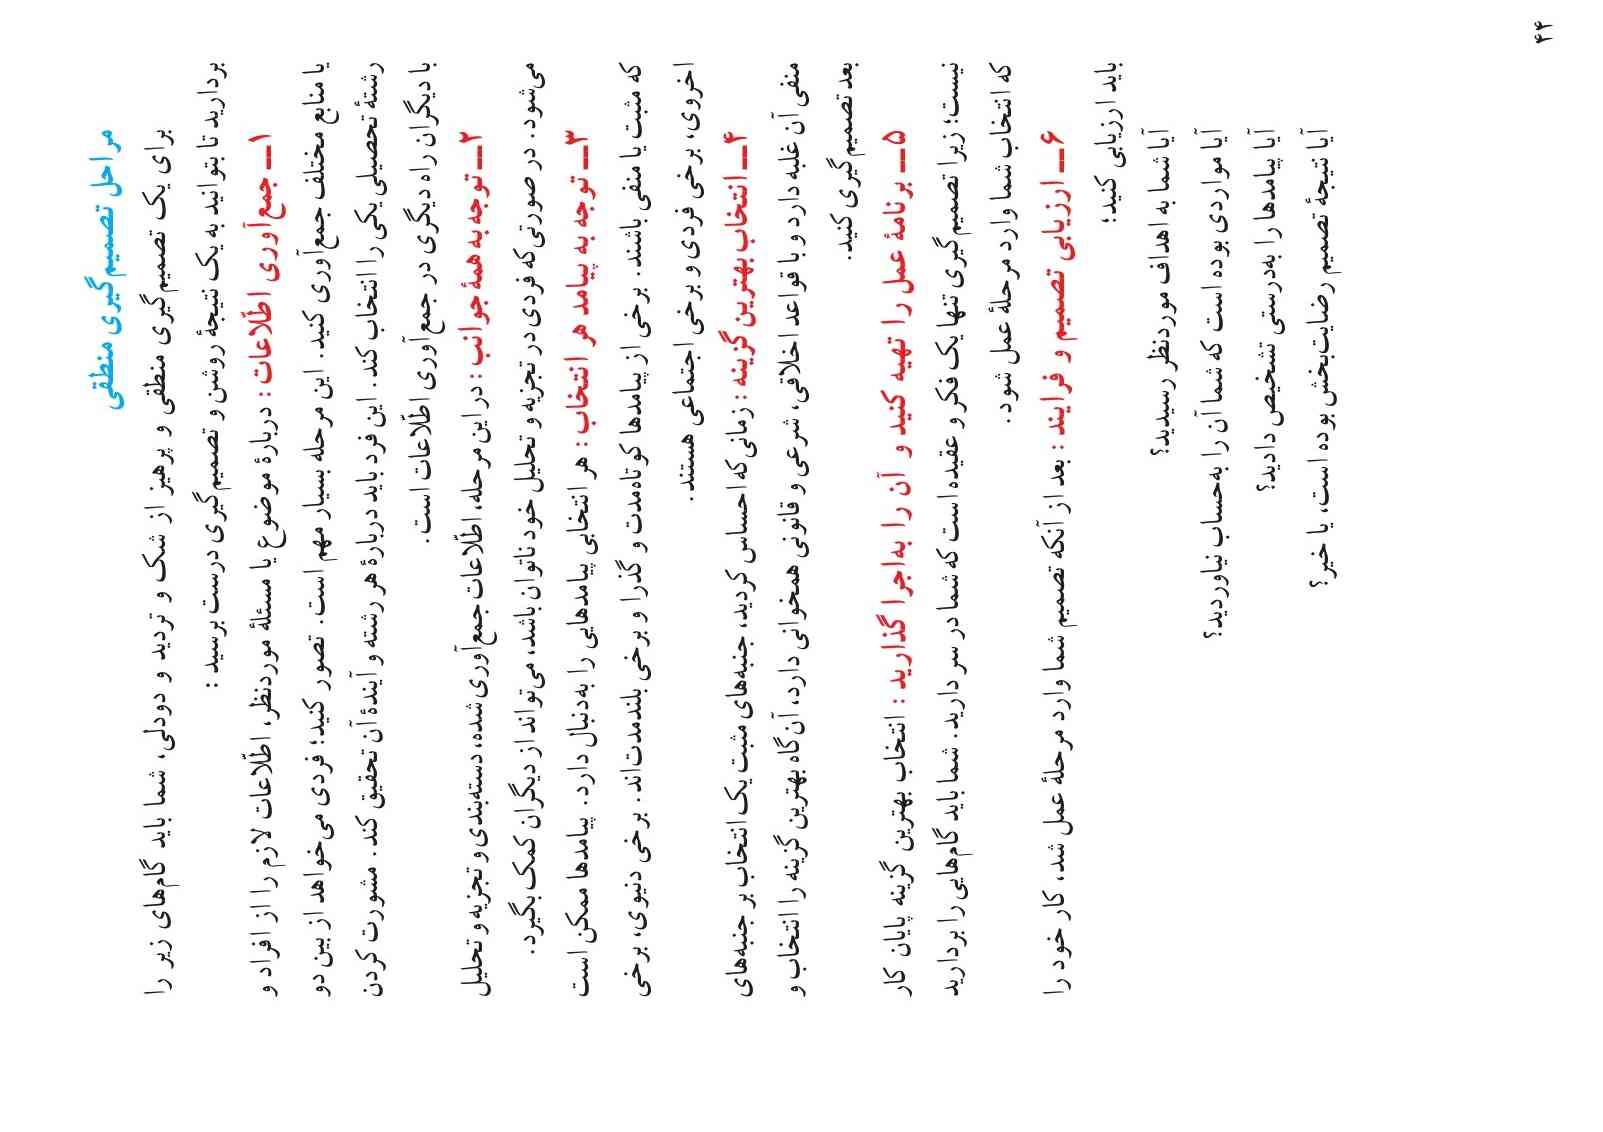 مراحل تصمیم‌گیری منطقی
برای یک تصمیم‌گیری منطقی و پرهیز از شک و تردید و دودلی، شما باید گام‌های زیر را
بردارید تا بتوانید به یک نتیجهٔ روشن و تصمیم‌گیری درست برسید :
۱ــ جمع‌آوری اطّلاعات : دربارهٔ موضوع یا مسئلهٔ موردنظر، اطّلاعات لازم را از افراد و
یا منابع مختلف جمع‌آوری کنید. این مرحله بسیار مهم است. تصور کنید؛ فردی می‌خواهد از بین دو
رشتهٔ تحصیلی یکی را انتخاب کند. این فرد باید دربارهٔ هر رشته و آیندهٔ آن تحقیق کند. مشورت کردن
با دیگران راه دیگری در جمع‌آوری اطّلاعات است.
۲ــ توجه به همهٔ جوانب : در این مرحله، اطّلاعات جمع‌آوری شده، دسته‌بندی و تجزیه و تحلیل
می‌شود. در صورتی‌که فردی در تجزیه و تحلیل خود ناتوان باشد، می‌تواند از دیگران کمک بگیرد.
۳ــ توجه به پیامد هر انتخاب : هر انتخابی پیامدهایی را به‌دنبال دارد. پیامدها ممکن است
که مثبت یا منفی باشند. برخی از پیامدها کوتاه‌مدت و گذرا و برخی بلندمدت‌اند. برخی دنیوی، برخی
اخروی، برخی فردی و برخی اجتماعی هستند.
۴ــ انتخاب بهترین گزینه : زمانی که احساس کردید، جنبه‌های مثبت یک انتخاب بر جنبه‌های
منفی آن غلبه دارد و با قواعد اخلاقی، شرعی و قانونی همخوانی دارد، آن‌گاه بهترین گزینه را انتخاب و
بعد تصمیم‌گیری کنید.
۵ــ برنامهٔ عمل را تهیه کنید و آن را به‌اجرا گذارید : انتخاب بهترین گزینه پایان کار
نیست؛ زیرا تصمیم‌گیری تنها یک فکر و عقیده است که شما در سر دارید. شما باید گام‌هایی را بردارید
که انتخاب شما وارد مرحلهٔ عمل شود.
۶ــ ارزیابی تصمیم و فرایند : بعد از آنکه تصمیم شما وارد مرحلهٔ عمل شد، کار خود را
باید ارزیابی کنید؛
آیا شما به اهداف موردنظر رسیدید؟
آیا مواردی بوده است که شما آن را به‌حساب نیاوردید؟
آیا پیامدها را به‌درستی تشخیص دادید؟
آیا نتیجهٔ تصمیم رضایت‌بخش بوده است، یا خیر؟
۴۴